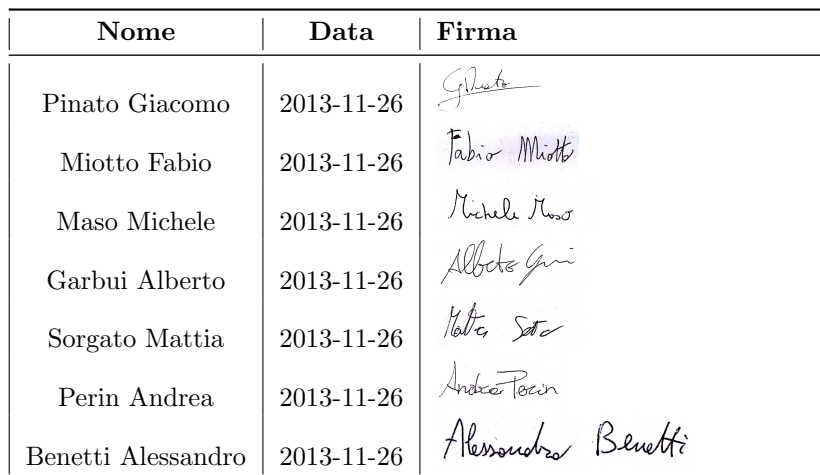 Nome Data Firma
Pinato Giacomo 2013-11-26 GPinato
Miotto Fabio 2013-11-26 Fabio Miotto
Maso Michele 2013-11-26 Michele Maso
Garbui Alberto 2013-11-26 Alberto
Sorgato Mattia 2013-11-26 Mattia
Perin Andrea 2013-11-26 Andrea Perin
Benetti Alessandro 2013-11-26 Alessandro Benetti